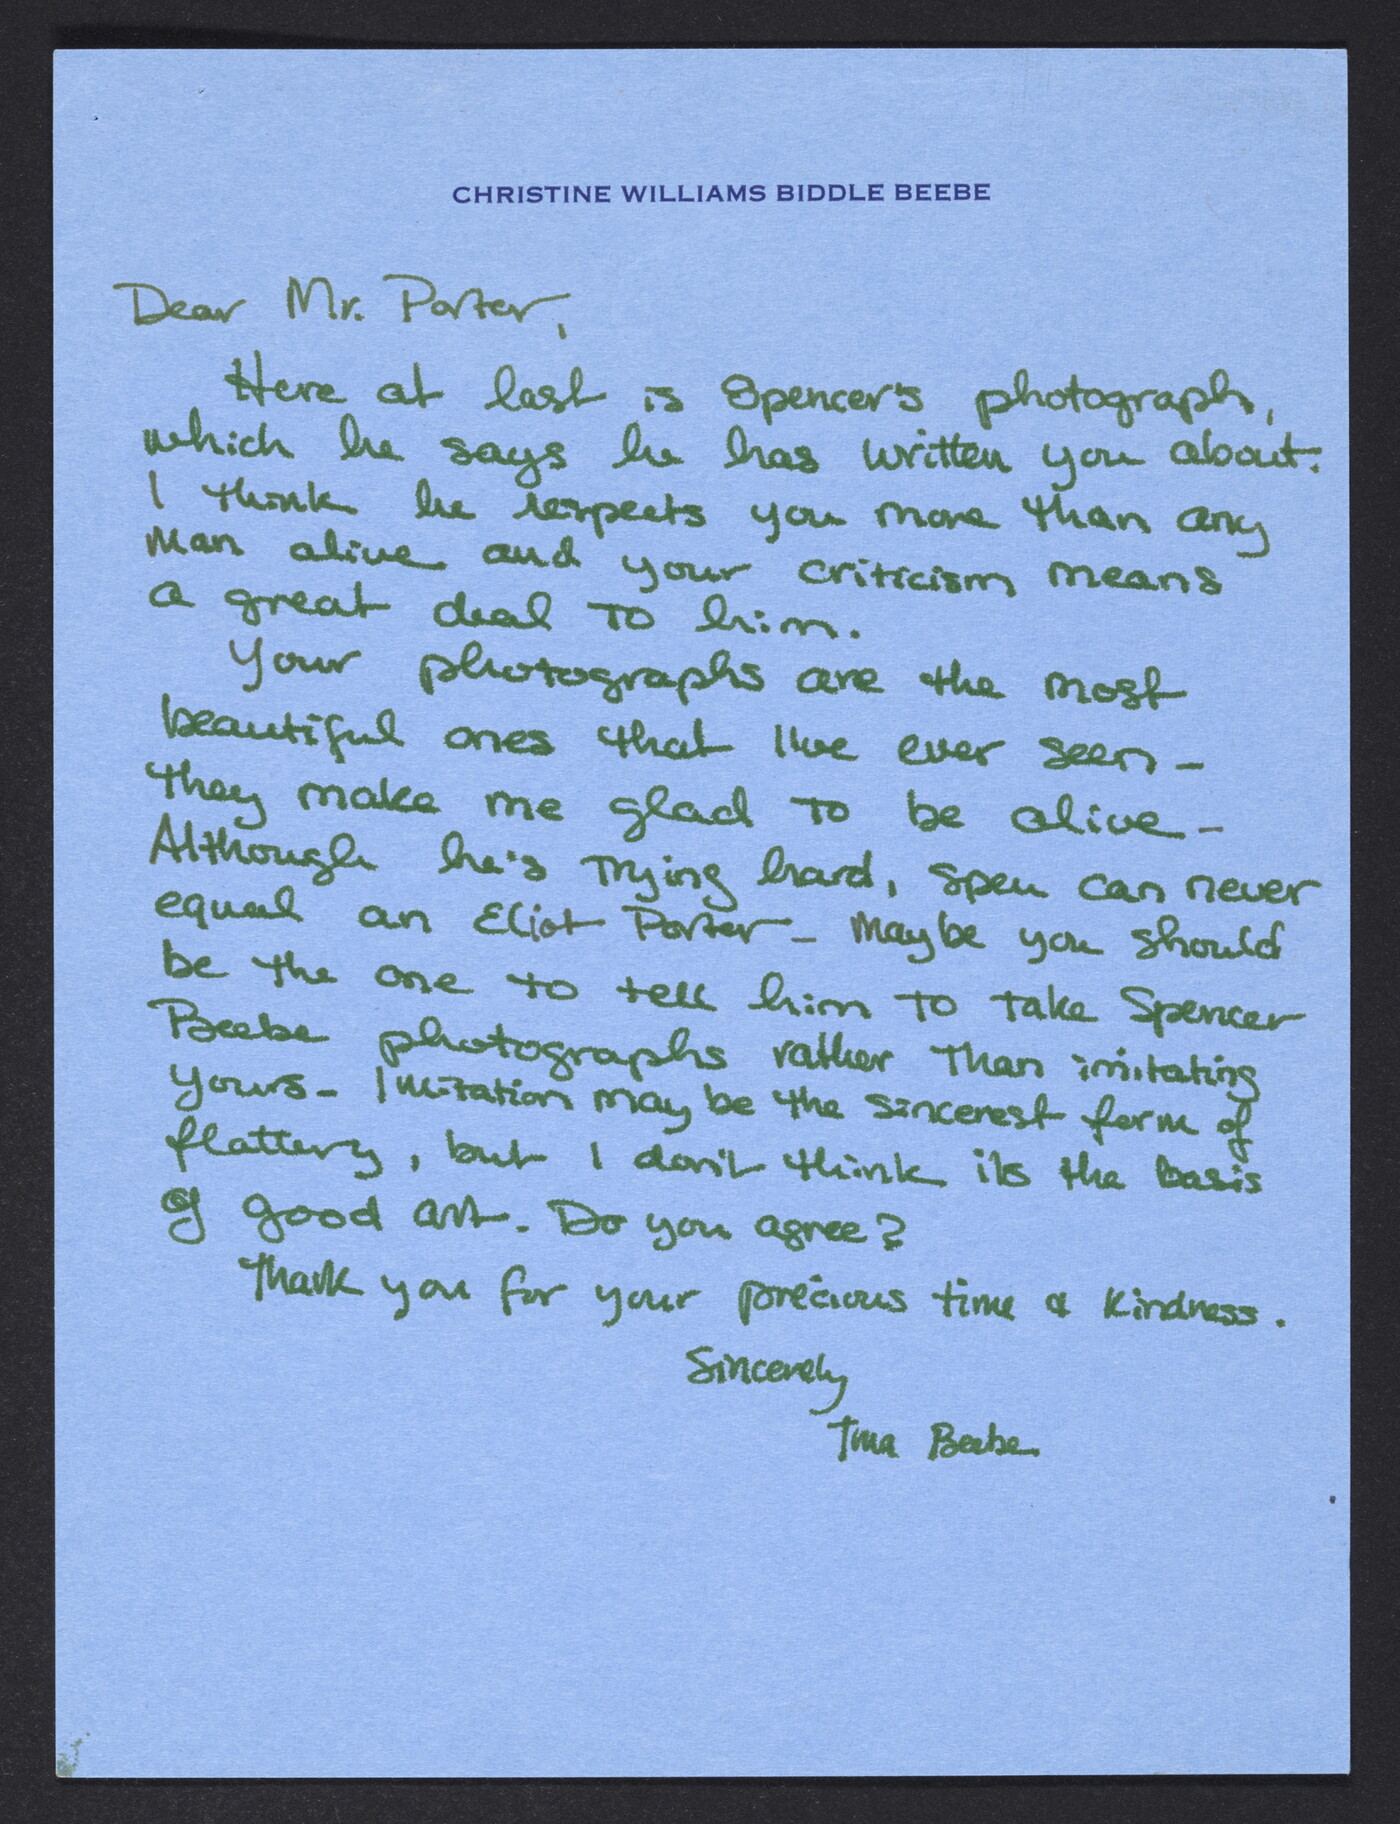 CHRISTINE WILLIAMS BIDDLE BEEBE
Dear Mr. Porter,
Here at last is Spencer's photograph,
which he says he has written you about.
I think he respects you more than any
man alive and your criticism means
a great deal to him.
Your photographs are the most
beautiful ones that I've ever seen -
they make me glad to be alive -
Although he's trying hard, Spen can never
equal an Eliot Porter - Maybe you should
be the one to tell him to take Spencer
Beebe photographs rather than imitating
yours - Imitation may be the sincerest form of
flattery, but I don't think its the basis
of good art. Do you agree?
Thank you for your precious time & kindness.
Sincerely
Tina Beebe